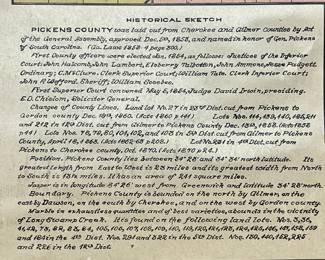 HISTORICAL SKETCH
PICKENS COUNTY was laid out from Cherokee and Gilmer Counties by Act
of the General Assembly, approved Dec. 5th, 1853, and named in honor of Gen. Pickens
of South Carolina. (Ga. Laws 1853-4 page 300.)
First County officers were elected Jan. 1854, as follows: Justices of the Inferior
Court: John Halcomb, John Lambert, E. Hebry Matthew, John Simmons, Reece Padgett.
Ordinary; C. McClure. Clerk Superior Court; William Tate. Clerk Inferior Court;
John A. Wofford. Sheriff, William
First Superior Court convened May 8, 1854, Judge David Irwin, presiding.
E.D. Chisolm, Solicitor General.
Change of County Lines. Land Lot No. 27 in 23rd Dist. cut from Pickens to
Gordon county Dec. 19th, 1860. (Acts 1860 p 141) Lots Nos.
and 212 in 12th Dist. cut from Gilmer to Pickens County Dec. 1858. (Acts 1858
p 41) Lots Nos. 78, 79, 80, 101, 102, and 103 in 5th Dist. cut from Gilmer to Pickens
County, April 18, 1863. (Acts 1862-63 p 208.) Lot No. 221 in 4th Dist., cut from
Pickens to Cherokee county, Oct. 1870. (Acts 1870
Position. Pickens County lies between 34°26' and 34°34' north latitude. Its
greatest length from East to West is 23 miles and its greatest width from North
to South is 13¾ miles. It has an area of 241 square miles.
Jasper is in longitude 84°26' west from Greenwich and latitude 34°28' north.
Boundary. Pickens County is bounded on the north by Gilmer, on the
east by Dawson, on the south by Cherokee, and on the west by Gordon county.
Marble in exhaustless quantities and of best varieties, abounds in the vicinity
of Long Swamp Creek. It is found on the following land lots. Nos.
and 184 in the 4th Dist. Nos. 291 and 322 in the 5th Dist. Nos. 150,
and 226 in the 12th Dist.